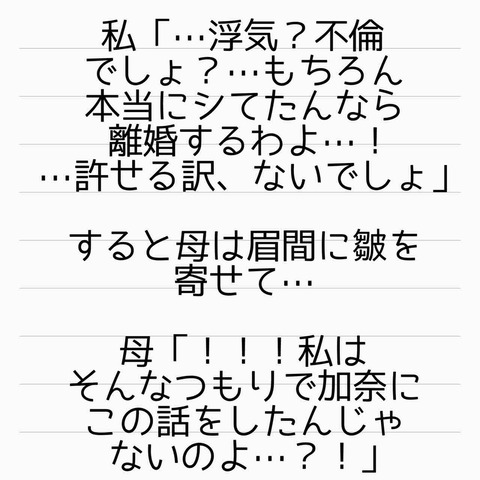 私「…浮気？不倫
でしょ？…もちろん
本当にシてたんなら
離婚するわよ…！
…許せる訳、ないでしょ」
すると母は眉間に皺を
寄せて…
母「！！！私は
そんなつもりで加奈に
この話をしたんじゃ
ないのよ…？！」